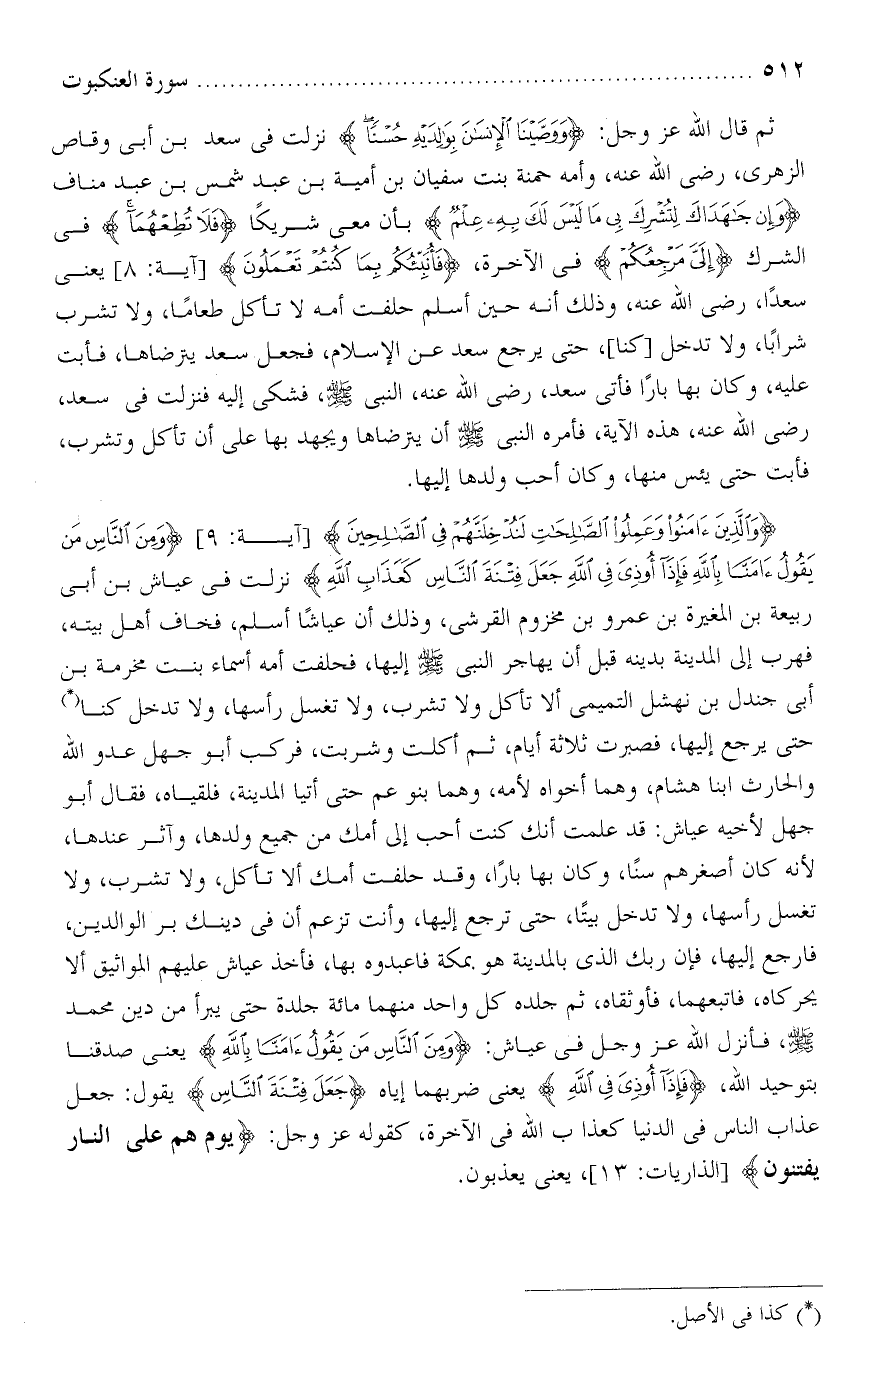 ٥١٢ ........................................................................ سورة العنكبوت
ثم قال الله عز وجل: ﴿وَوَصَّيْنَا ٱلْإِنسَٰنَ بِوَٰلِدَيْهِ حُسْنًا﴾ نزلت فى سعد بن أبى وقاص
الزهرى، رضى الله عنه، وأمه حمنة بنت سفيان بن أمية بن عبد شمس بن عبد مناف
﴿وَإِن جَٰهَدَاكَ لِتُشْرِكَ بِى مَا لَيْسَ لَكَ بِهِۦ عِلْمٌ﴾ بأن معى شريكًا ﴿فَلَا تُطِعْهُمَآ﴾ فى
الشرك ﴿إِلَىَّ مَرْجِعُكُمْ﴾ فى الآخرة، ﴿فَأُنَبِّئُكُم بِمَا كُنتُمْ تَعْمَلُونَ﴾ [آية: ٨] يعنى
سعدًا، رضى الله عنه، وذلك أنه حين أسلم حلفت أمه لا تأكل طعامًا، ولا تشرب
شرابًا، ولا تدخل [كنا]، حتى يرجع سعد عن الإسلام، فجعل سعد يترضاها، فأبت
عليه، وكان بها بارًا فأتى سعد، رضى الله عنه، النبى ﷺ، فشكى إليه فنزلت فى سعد،
رضى الله عنه، هذه الآية، فأمره النبى ﷺ أن يترضاها ويجهد بها على أن تأكل وتشرب،
فأبت حتى يئس منها، وكان أحب ولدها إليها.
﴿وَٱلَّذِينَ ءَامَنُوا۟ وَعَمِلُوا۟ ٱلصَّٰلِحَٰتِ لَنُدْخِلَنَّهُمْ فِى ٱلصَّٰلِحِينَ﴾ [آية: ٩] ﴿وَمِنَ ٱلنَّاسِ مَن
يَقُولُ ءَامَنَّا بِٱللَّهِ فَإِذَآ أُوذِىَ فِى ٱللَّهِ جَعَلَ فِتْنَةَ ٱلنَّاسِ كَعَذَابِ ٱللَّهِ﴾ نزلت فى عياش بن أبى
ربيعة بن المغيرة بن عمرو بن مخزوم القرشى، وذلك أن عياشًا أسلم، فخاف أهل بيته،
فهرب إلى المدينة بدينه قبل أن يهاجر النبى ﷺ إليها، فحلفت أمه أسماء بنت مخرمة بن
أبى جندل بن نهشل التميمى ألا تأكل ولا تشرب، ولا تغسل رأسها، ولا تدخل كنا(*)
حتى يرجع إليها، فصبرت ثلاثة أيام، ثم أكلت وشربت، فركب أبو جهل عدو الله
والحارث ابنا هشام، وهما أخواه لأمه، وهما بنو عم حتى أتيا المدينة، فلقياه، فقال أبو
جهل لأخيه عياش: قد علمت أنك كنت أحب إلى أمك من جميع ولدها، وآثر عندها،
لأنه كان أصغرهم سنًا، وكان بها بارًا، وقد حلفت أمك ألا تأكل، ولا تشرب، ولا
تغسل رأسها، ولا تدخل بيتًا، حتى ترجع إليها، وأنت تزعم أن فى دينك بر الوالدين،
فارجع إليها، فإن ربك الذى بالمدينة هو بمكة فاعبدوه بها، فأخذ عياش عليهم المواثيق ألا
يحركاه، فاتبعهما، فأوثقاه، ثم جلده كل واحد منهما مائة جلدة حتى يبرأ من دين محمد
ﷺ، فأنزل الله عز وجل فى عياش: ﴿وَمِنَ ٱلنَّاسِ مَن يَقُولُ ءَامَنَّا بِٱللَّهِ﴾ يعنى صدقنا
بتوحيد الله، ﴿فَإِذَآ أُوذِىَ فِى ٱللَّهِ﴾ يعنى ضربهما إياه ﴿جَعَلَ فِتْنَةَ ٱلنَّاسِ﴾ يقول: جعل
عذاب الناس فى الدنيا كعذا ب الله فى الآخرة، كقوله عز وجل: ﴿يوم هم على النار
يفتنون﴾ [الذاريات: ١٣]، يعنى يعذبون.
(*) كذا فى الأصل.